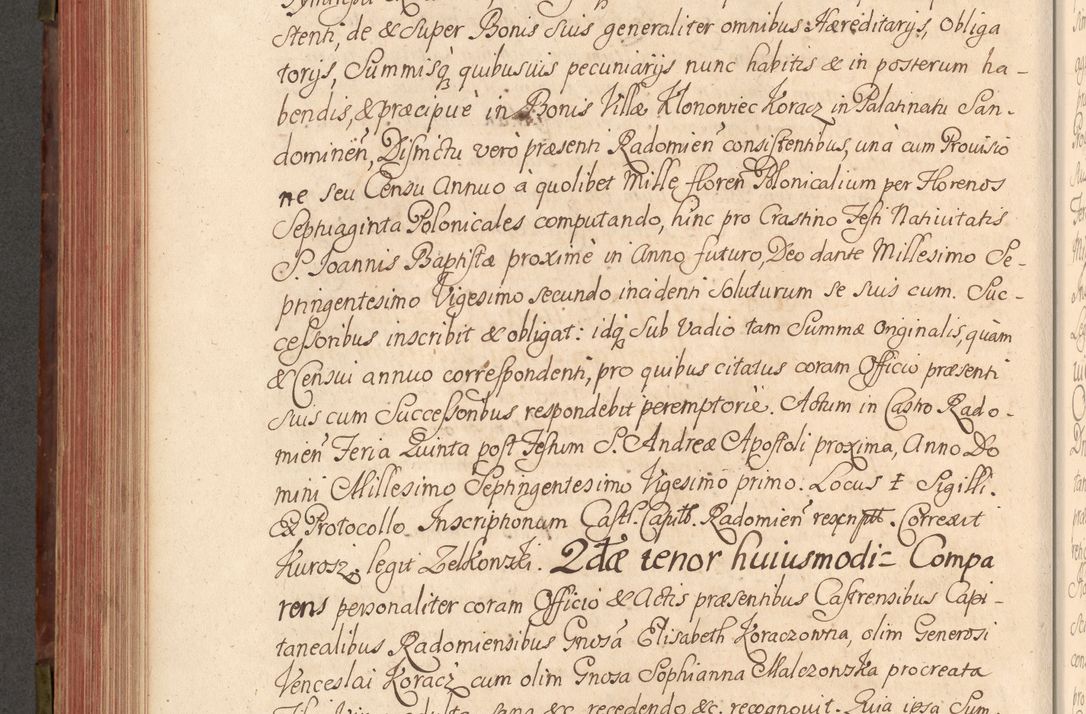 stenti, de & super Bonis suis generaliter omnibus Hæreditarijs, Obliga
torijs, Summisq₃ quibusuis pecuniarijs nunc habitis & in posterum ha-
bendis, & præcipuè in Bonis Villæ Klonowiec Koracz in Palatinatu San-
dominēn, Districtu verò præsenti Radomień consistentibus, unà cum Prouisio
ne seu Censu Annuo à quolibet Mille floreń Polonicalium per Florenos
Septuaginta Polonicales computando, hinc pro Crastino Festi Natiuitatis
S. Joannis Baptistæ proximè in Anno futuro, Deo dante Millesimo Se-
ptingentesimo Vigesimo secundo, incidenti soluturum se suis cum. Suc-
cessoribus inscribit & obligat: idq₃ sub vadio tam Summæ originalis, quàm
& Censui annuo correspondenti, pro quibus citatus coram Officio præsenti
suis cum Successoribus respondebit peremptoriè. Actum in Castro Rado-
mień Feria Quinta post Festum S. Andreæ Apostoli proxima, Anno Do
mini Millesimo Septingentesimo Vigesimo primo. Locus ‡ Sigilli.
Ex Protocollo Inscriptionum Castr. Capitlb. Radomień rescript. Correxit
Kurosz. legit Zelkowski. 2dæ tenor huiusmodi= Compa
rens personaliter coram Officio & Actis præsentibus Castrensibus Capi-
tanealibus Radomiensibus Gnosa Elisabeth Koraczowna, olim Generosi
Venceslai Koracz cum olim Gnosa Sophianna Malczonska procreata
recedendo &c. recognouit. Quia ipsa Sum-